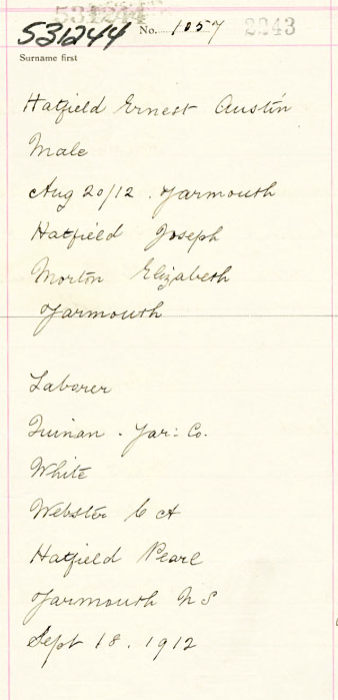 531244
531244 No. 1057 2243
Surname first
Hatfield Ernest Austin
Male
Aug 20/12. Yarmouth
Hatfield Joseph
Morton Elizabeth
Yarmouth
Laborer
Quinan. Yar: Co.
White
Webster C A
Hatfield Pearl
Yarmouth N S
Sept 18. 1912